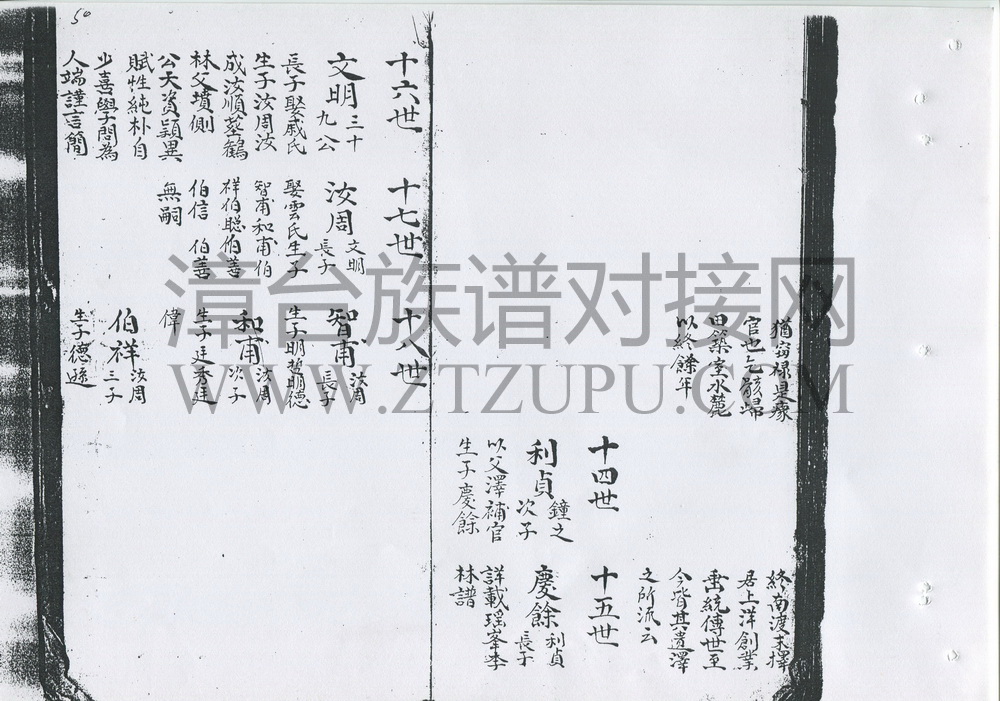 猶竊祿是療
官也乞骸歸
田築室水麓
以終餘年
終南渡末擇
君上洋創業
垂統傳世至
今皆其遺澤
之所流云
十四世
利貞
鐘之
次子
以父澤補官
生子慶餘
十五世
慶餘
利貞
長子
詳載瑤峯李
林譜
50
十六世
文明
三十
九公
長子娶戚氏
生子汝周汝
成汝順墓鶴
林父墳側
公天資穎異
賦性純朴自
少喜學問為
人端謹言簡
十七世
汝周
文明
長子
娶雲氏生子
智甫和甫伯
祥伯聰伯善
伯信 伯善
無嗣
十八世
智甫
汝周
長子
生子明哲明德
和甫
汝周
次子
生子廷秀廷
偉
伯祥
汝周
三子
生子德遜
漳台族谱对接网
WWW.ZTZUPU.COM